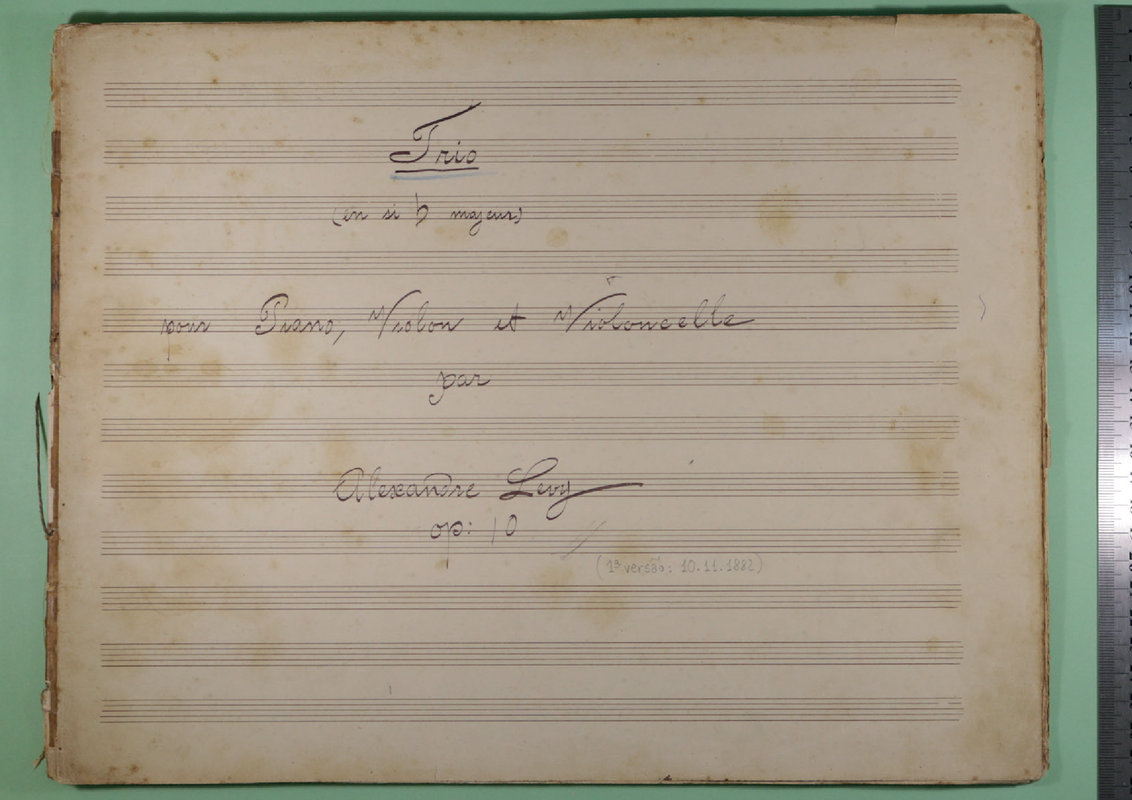 Trio
(en si b majeur)
pour Piano, Violon et Violoncelle
par
Alexandre Levy
op: 10
(1ª versão: 10.11.1882)